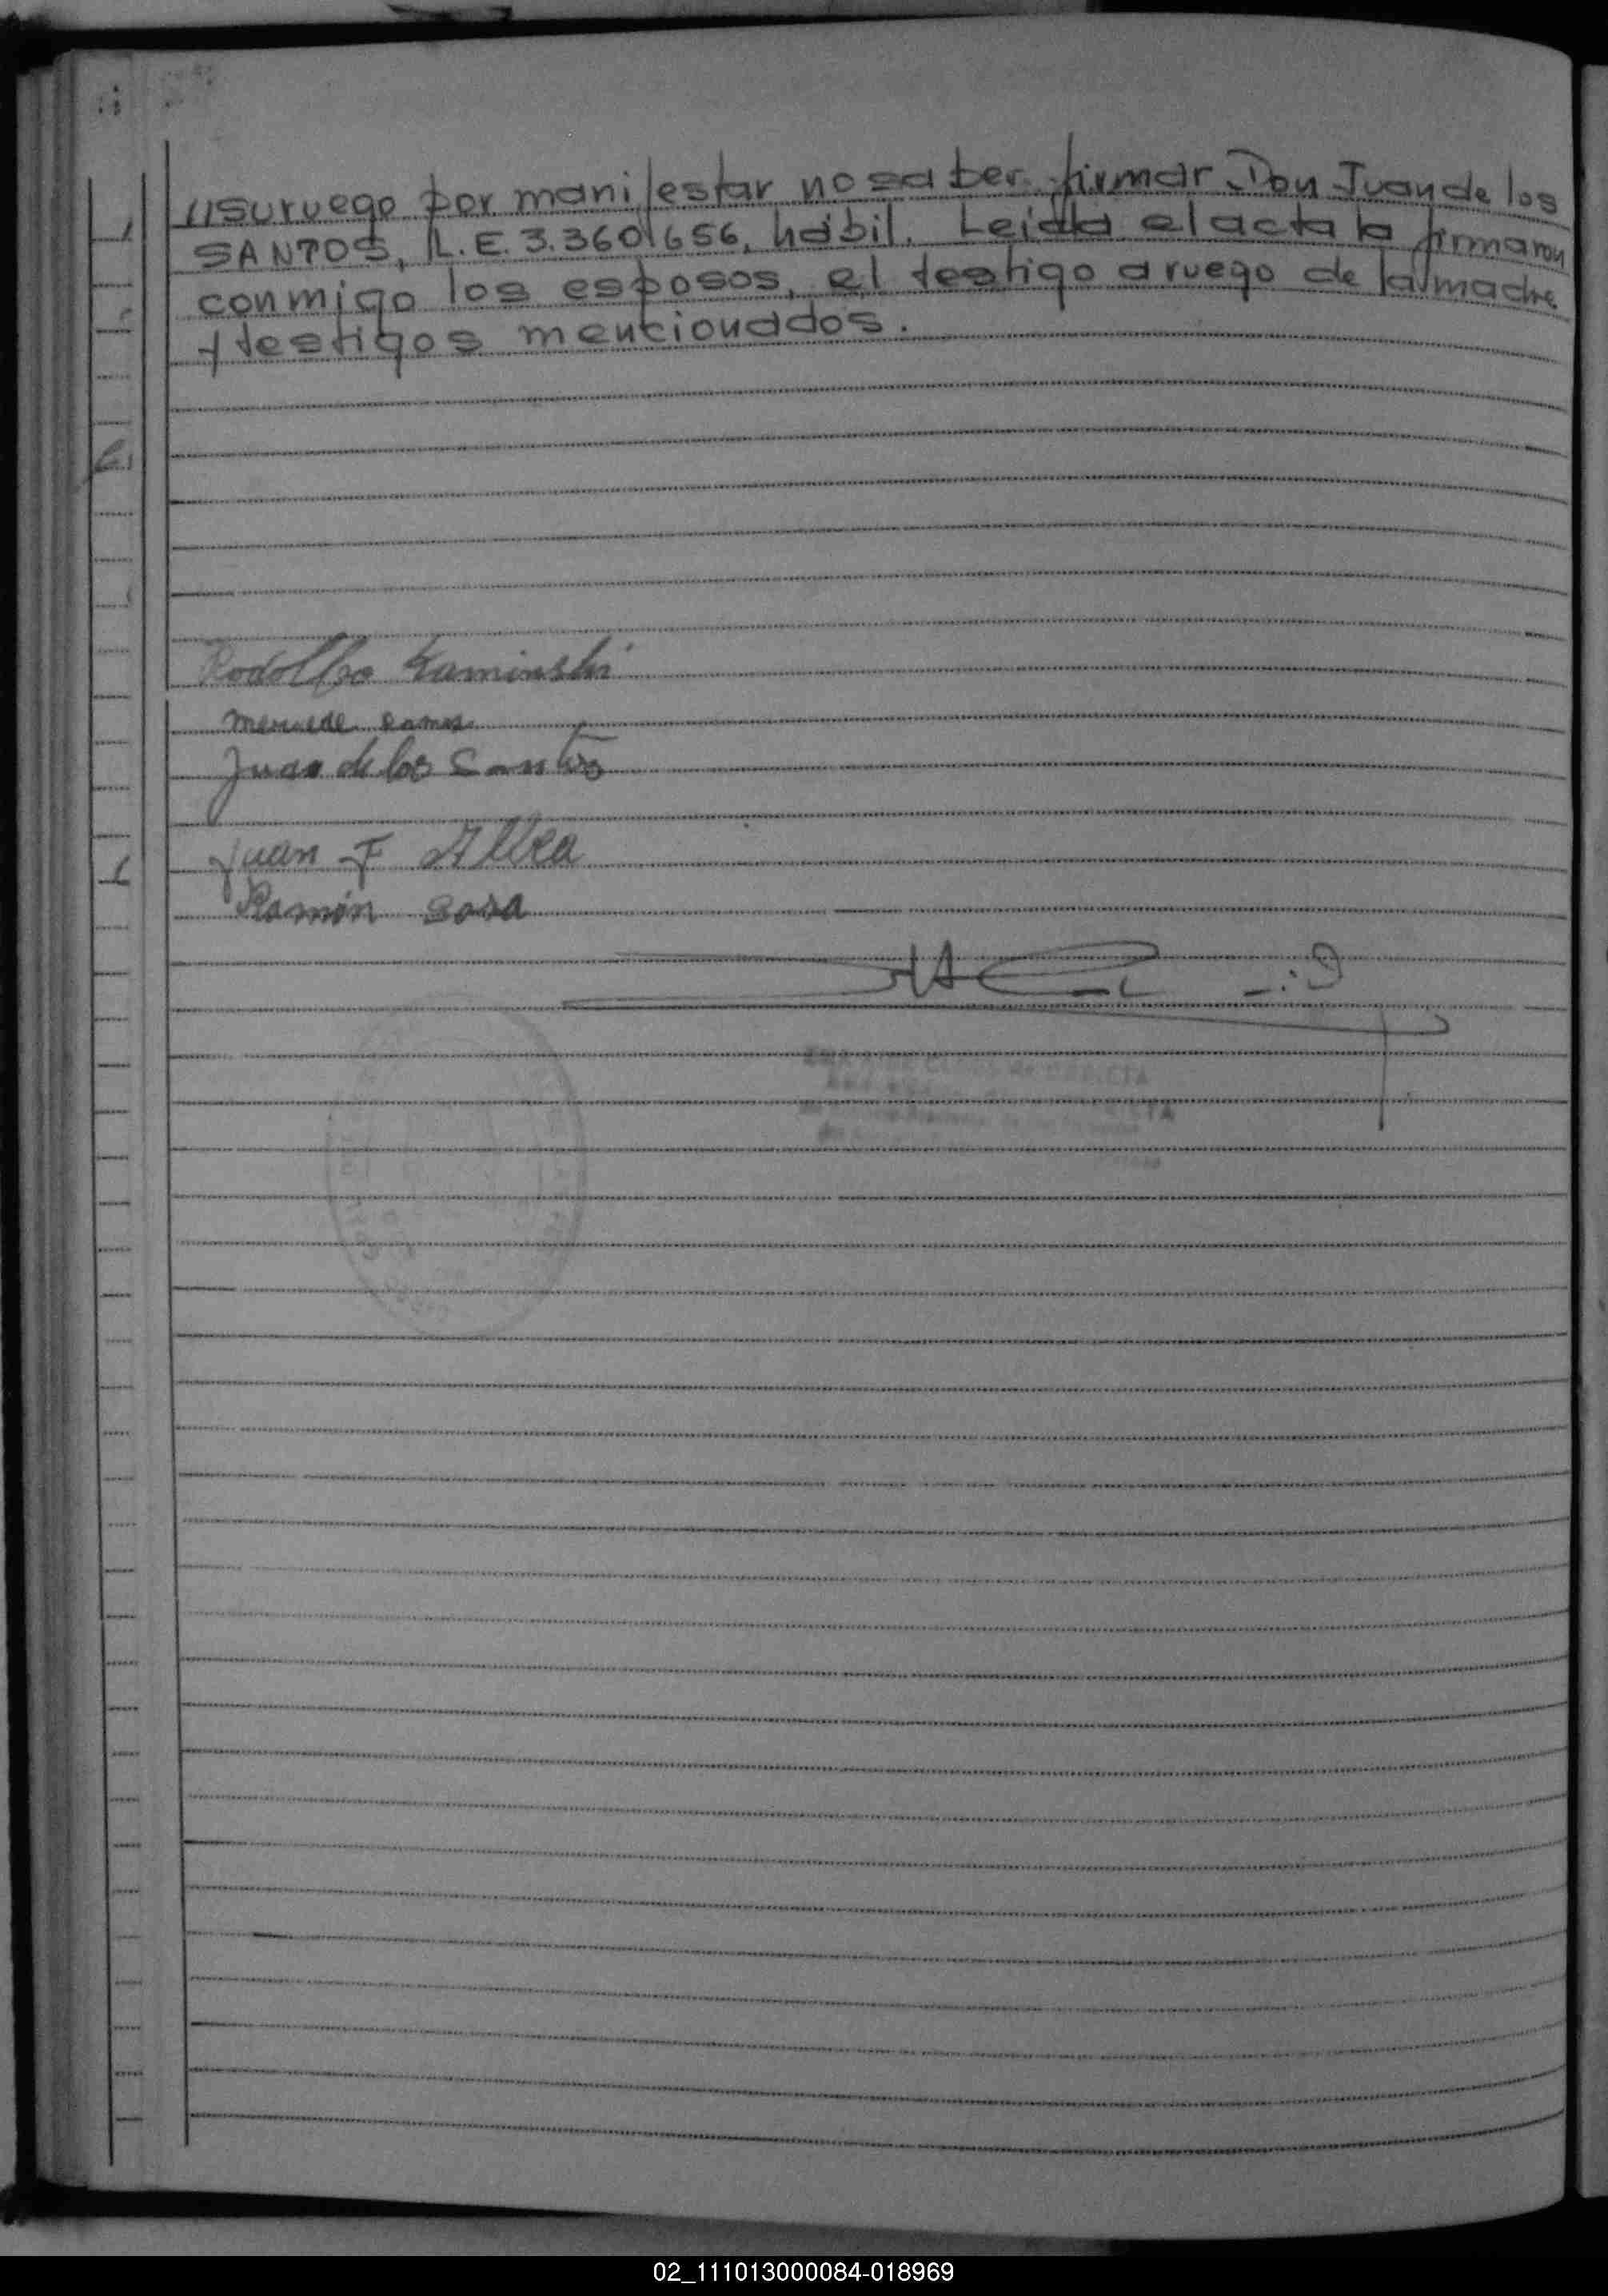 //su ruego por manifestar no saber firmar Don Juan de los
SANTOS, L.E. 3.360.656, hábil. Leida el acta la firmaron
conmigo los esposos, el testigo a ruego de la madre
y testigos mencionados.
Rodolfo Kaminski
Mercede Ramos
Juan de los Santos
Juan F Allea
Ramón Sosa
02_111013000084-018969